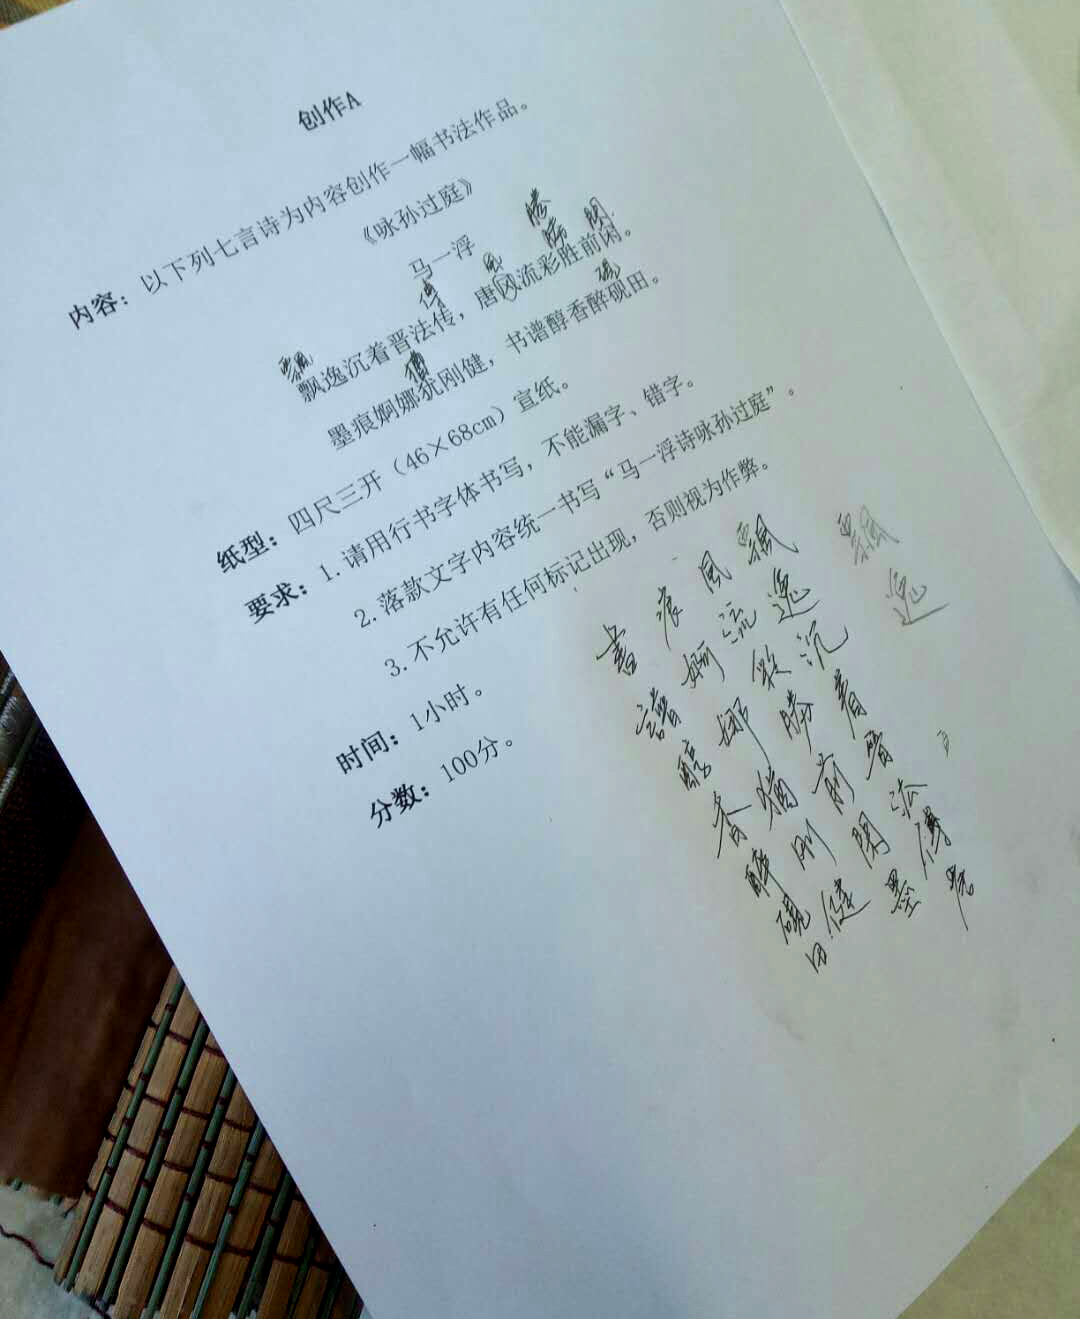 创作A
内容：以下列七言诗为内容创作一幅书法作品。
《咏孙过庭》
马一浮
飘逸沉着晋法传，唐风流彩胜前闲。
墨痕婀娜犹刚健，书谱醇香醉砚田。
纸型：四尺三开（46×68cm）宣纸。
要求：1.请用行书字体书写，不能漏字、错字。
2.落款文字内容统一书写“马一浮诗咏孙过庭”。
3.不允许有任何标记出现，否则视为作弊。
时间：1小时。
分数：100分。
飄逸
飄逸沉着晋法傳唐
風流彩勝前閑墨
痕婀娜猶刚健
書譜醇香醉硯田